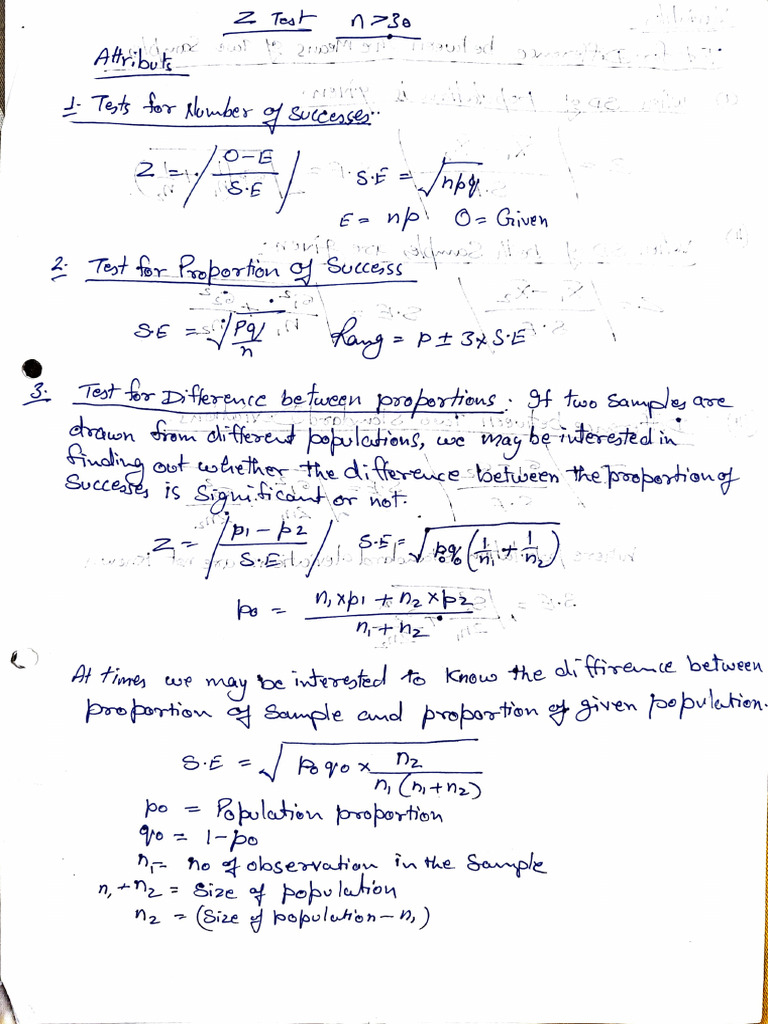 Z Test n>30
Attributs
1. Tests for Number of Successes..
Z = |O-E / S.E| S.E = √npq
E = np O = Given
2. Test for Proportion of Successs
S.E = √pq/n Rang = P ± 3 x S.E
3. Test for Difference between proportions. If two samples are
drawn from different populations, we may be interested in
finding out whether the difference between the proportion of
Successes is Significant or not.
Z = |p1 - p2 / S.E| S.E = √p0q0 (1/n1 + 1/n2)
p0 = n1 x p1 + n2 x p2 / n1 + n2
At times we may be interested to know the diffirence between
proportion of sample and proportion of given population.
S.E = √p0 q0 x n2 / n1 (n1 + n2)
p0 = Population proportion
q0 = 1 - p0
n1 = no of observation in the sample
n1 + n2 = Size of population
n2 = (Size of population - n1)